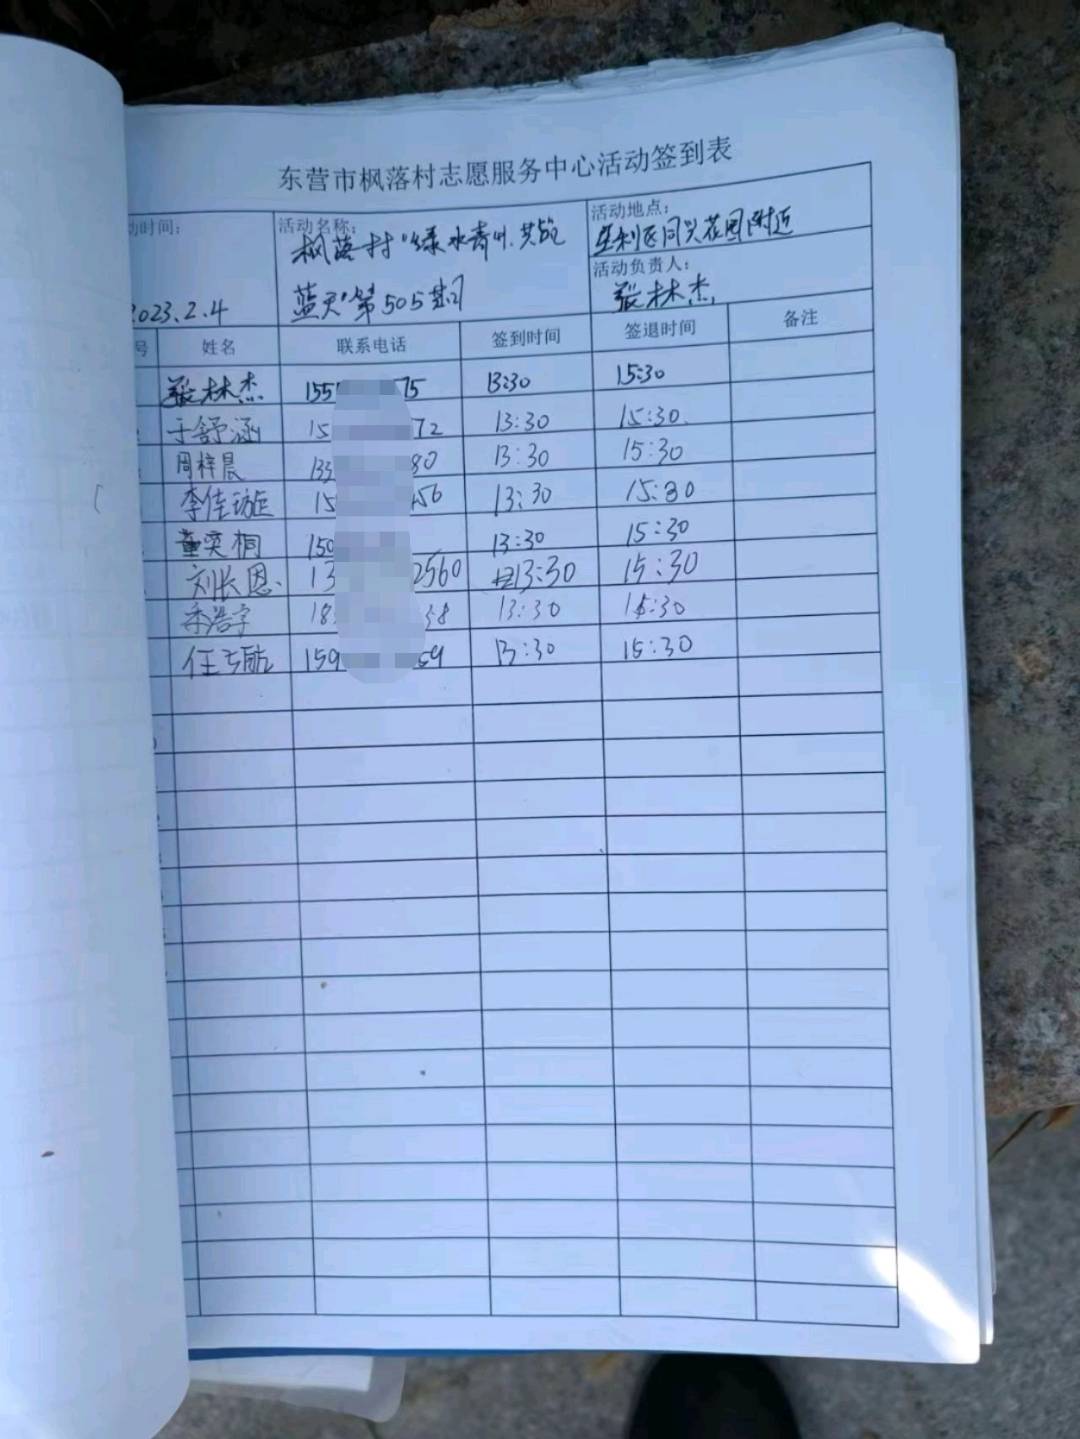 东营市枫落村志愿服务中心活动签到表
动时间:
2023.2.4
活动名称:
枫落村"绿水青山.共筑
蓝天"第505期
活动地点:
垦利区同兴花园附近
活动负责人:
张林杰
号 姓名 联系电话 签到时间 签退时间 备注
张林杰 155 75 13:30 15:30
于舒涵 15 72 13:30 15:30
周梓晨 133 80 13:30 15:30
李佳璇 15 456 13:30 15:30
董奕桐 150 13:30 15:30
刘长恩 13 2560 13:30 15:30
季浩宇 18 38 13:30 15:30
任 航 159 59 13:30 15:30